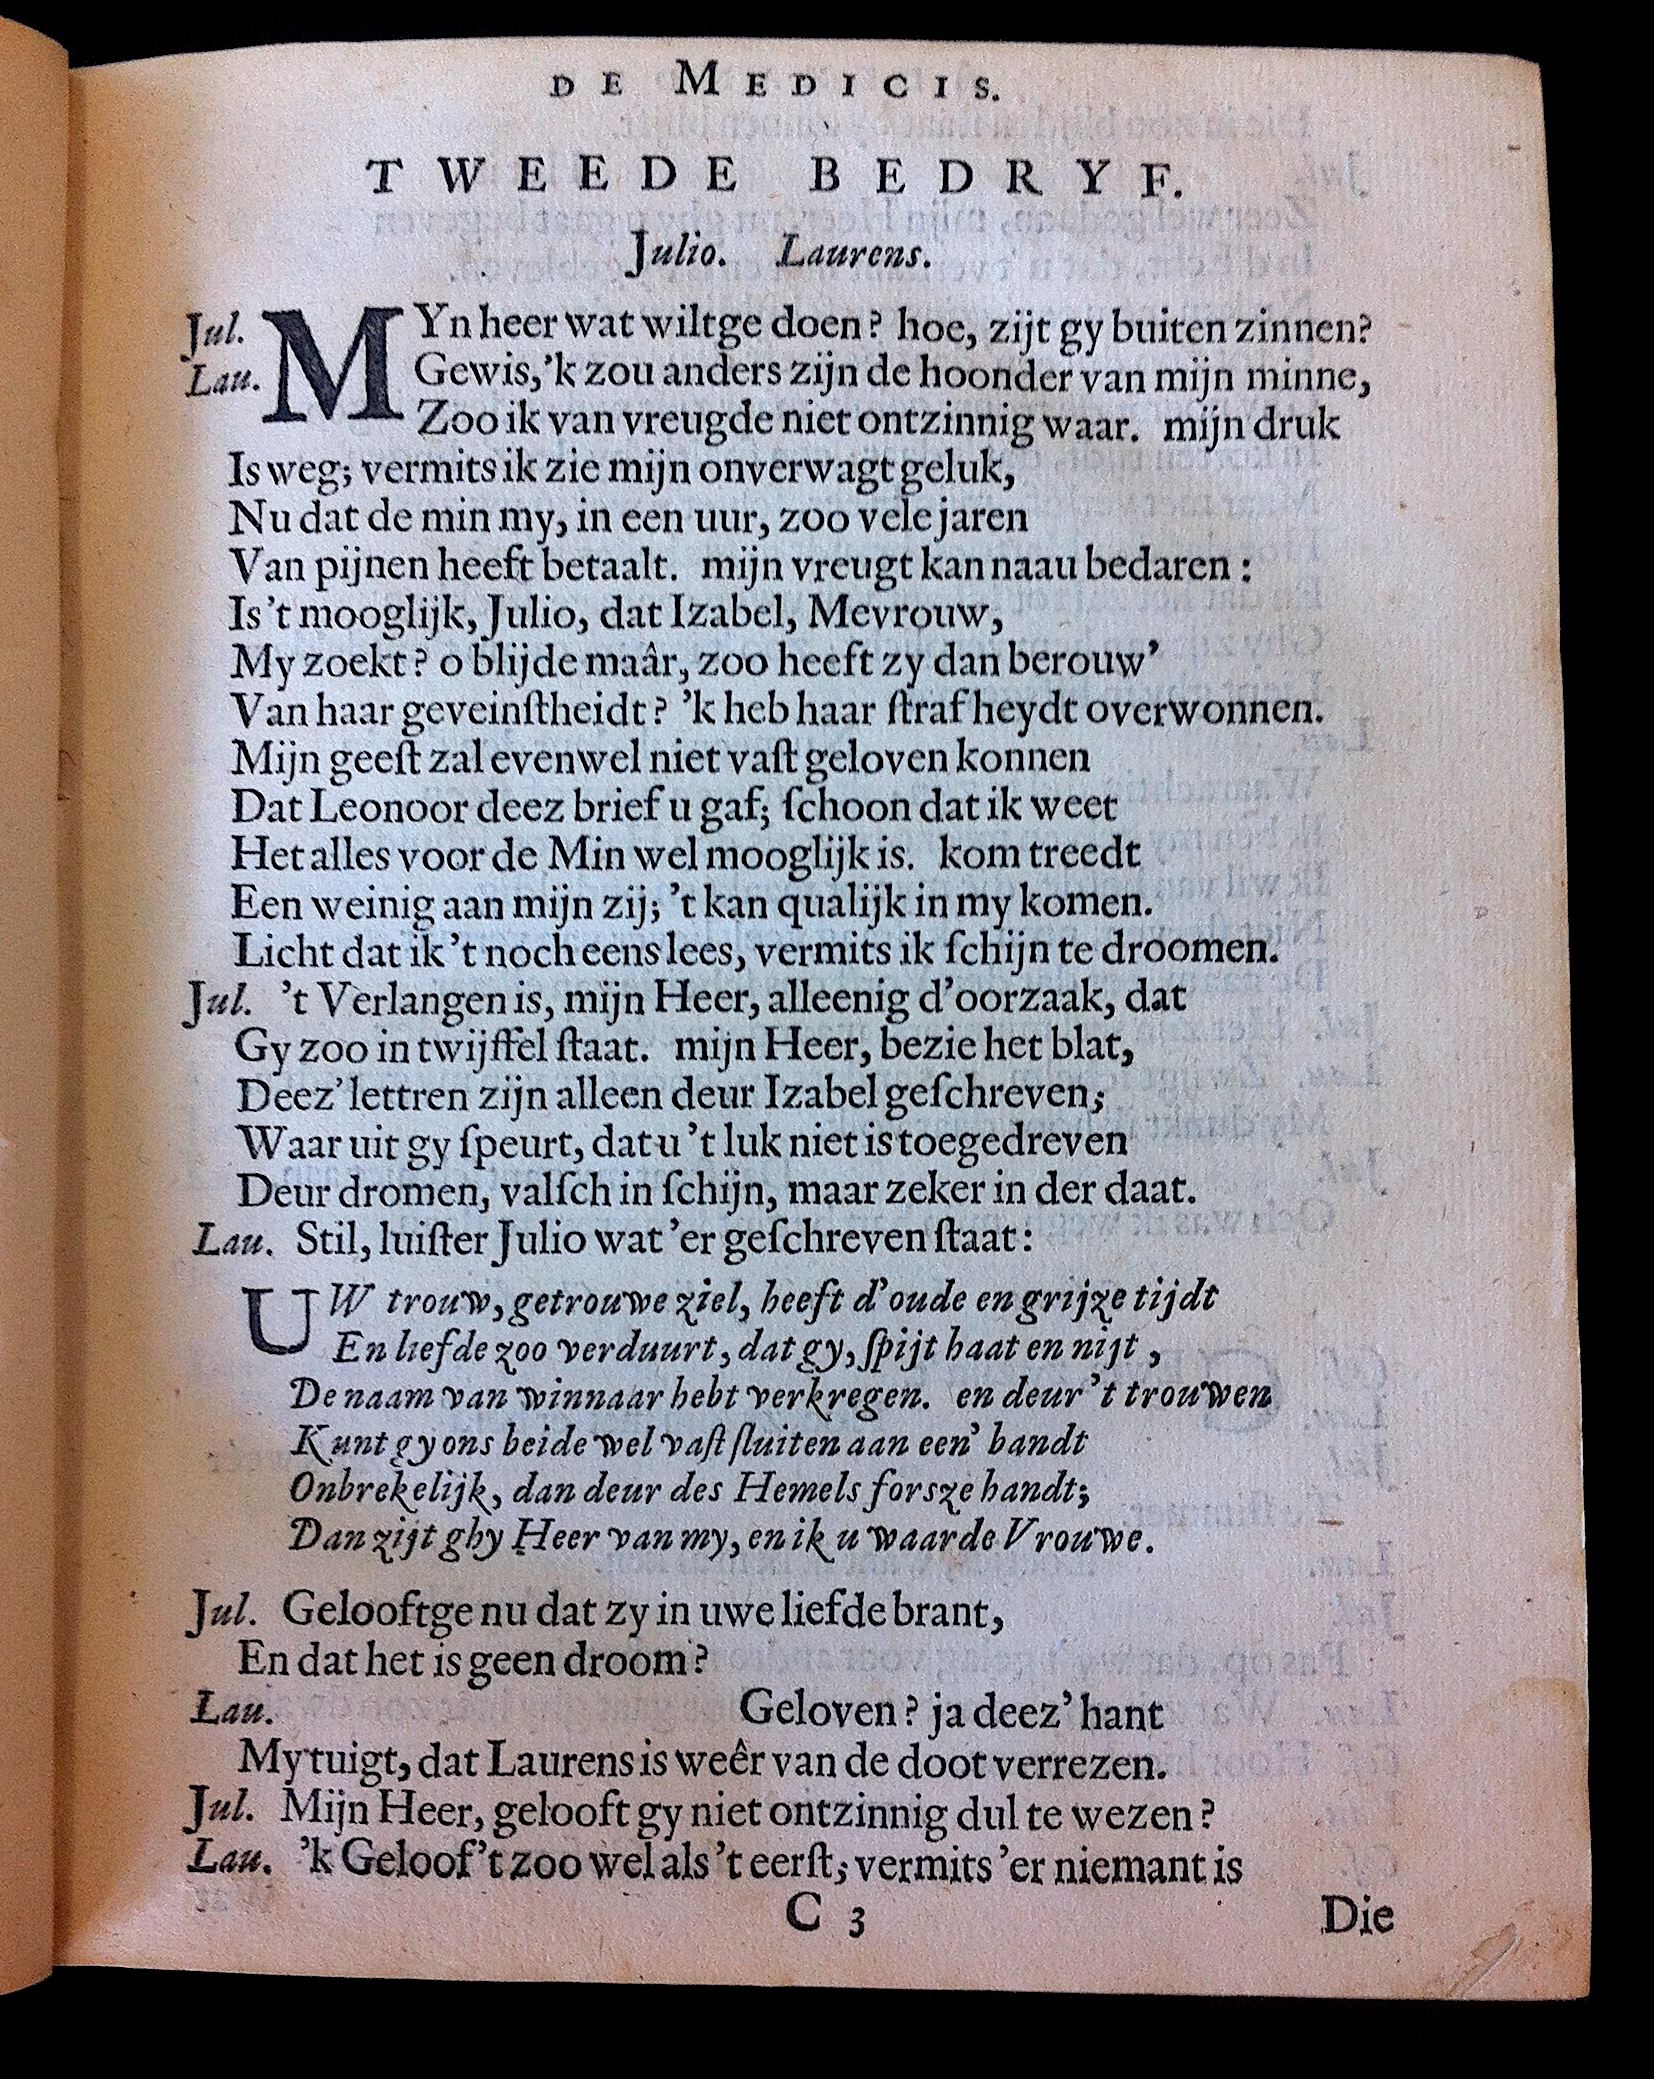 DE MEDICIS.
TWEEDE BEDRYF.
Julio. Laurens.
Jul. MYn heer wat wiltge doen? hoe, zijt gy buiten zinnen?
Lau. Gewis, 'k zou anders zijn de hoonder van mijn minne,
Zoo ik van vreugde niet ontzinnig waar. mijn druk
Is weg; vermits ik zie mijn onverwagt geluk,
Nu dat de min my, in een uur, zoo vele jaren
Van pijnen heeft betaalt. mijn vreugt kan naau bedaren:
Is 't mooglijk, Julio, dat Izabel, Mevrouw,
My zoekt? o blijde maâr, zoo heeft zy dan berouw'
Van haar geveinſtheidt? 'k heb haar ſtrafheydt overwonnen.
Mijn geeſt zal evenwel niet vaſt geloven konnen
Dat Leonoor deez brief u gaf; ſchoon dat ik weet
Het alles voor de Min wel mooglijk is. kom treedt
Een weinig aan mijn zij; 't kan qualijk in my komen.
Licht dat ik 't noch eens lees, vermits ik ſchijn te droomen.
Jul. 't Verlangen is, mijn Heer, alleenig d'oorzaak, dat
Gy zoo in twijffel ſtaat. mijn Heer, bezie het blat,
Deez' lettren zijn alleen deur Izabel geſchreven;
Waar uit gy ſpeurt, dat u 't luk niet is toegedreven
Deur dromen, valſch in ſchijn, maar zeker in der daat.
Lau. Stil, luiſter Julio wat 'er geſchreven ſtaat:
UW trouw, getrouwe ziel, heeft d'oude en grijze tijdt
En liefde zoo verduurt, dat gy, ſpijt haat en nijt,
De naam van winnaar hebt verkregen. en deur 't trouwen
Kunt gy ons beide wel vaſt ſluiten aan een' bandt
Onbrekelijk, dan deur des Hemels forsze handt;
Dan zijt ghy Heer van my, en ik u waarde Vrouwe.
Jul. Gelooftge nu dat zy in uwe liefde brant,
En dat het is geen droom?
Lau. Geloven? ja deez' hant
My tuigt, dat Laurens is weêr van de doot verrezen.
Jul. Mijn Heer, gelooft gy niet ontzinnig dul te wezen?
Lau. 'k Geloof 't zoo wel als 't eerſt; vermits 'er niemant is
C 3 Die